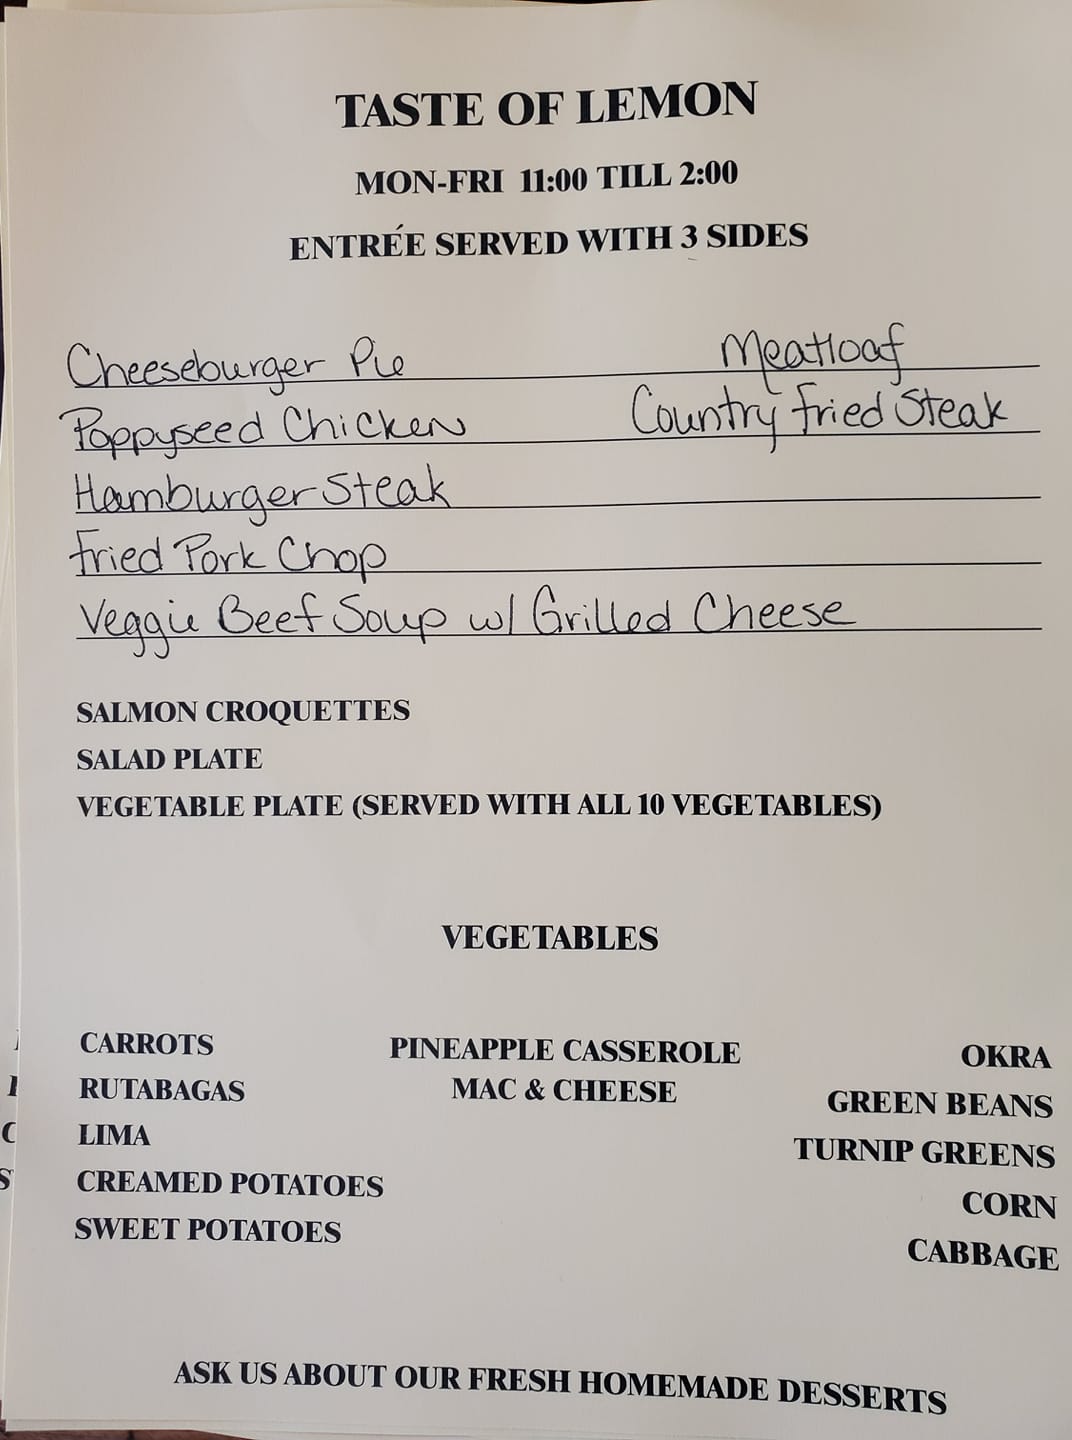 TASTE OF LEMON
MON-FRI 11:00 TILL 2:00
ENTRÉE SERVED WITH 3 SIDES
Cheeseburger Pie Meatloaf
Poppyseed Chicken Country Fried Steak
Hamburger Steak
Fried Pork Chop
Veggie Beef Soup w/ Grilled Cheese
SALMON CROQUETTES
SALAD PLATE
VEGETABLE PLATE (SERVED WITH ALL 10 VEGETABLES)
VEGETABLES
CARROTS PINEAPPLE CASSEROLE OKRA
RUTABAGAS MAC & CHEESE GREEN BEANS
LIMA TURNIP GREENS
CREAMED POTATOES CORN
SWEET POTATOES CABBAGE
ASK US ABOUT OUR FRESH HOMEMADE DESSERTS